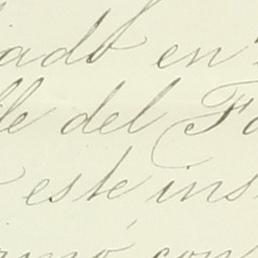 iado en
lle del Fa
este ins
rmó con